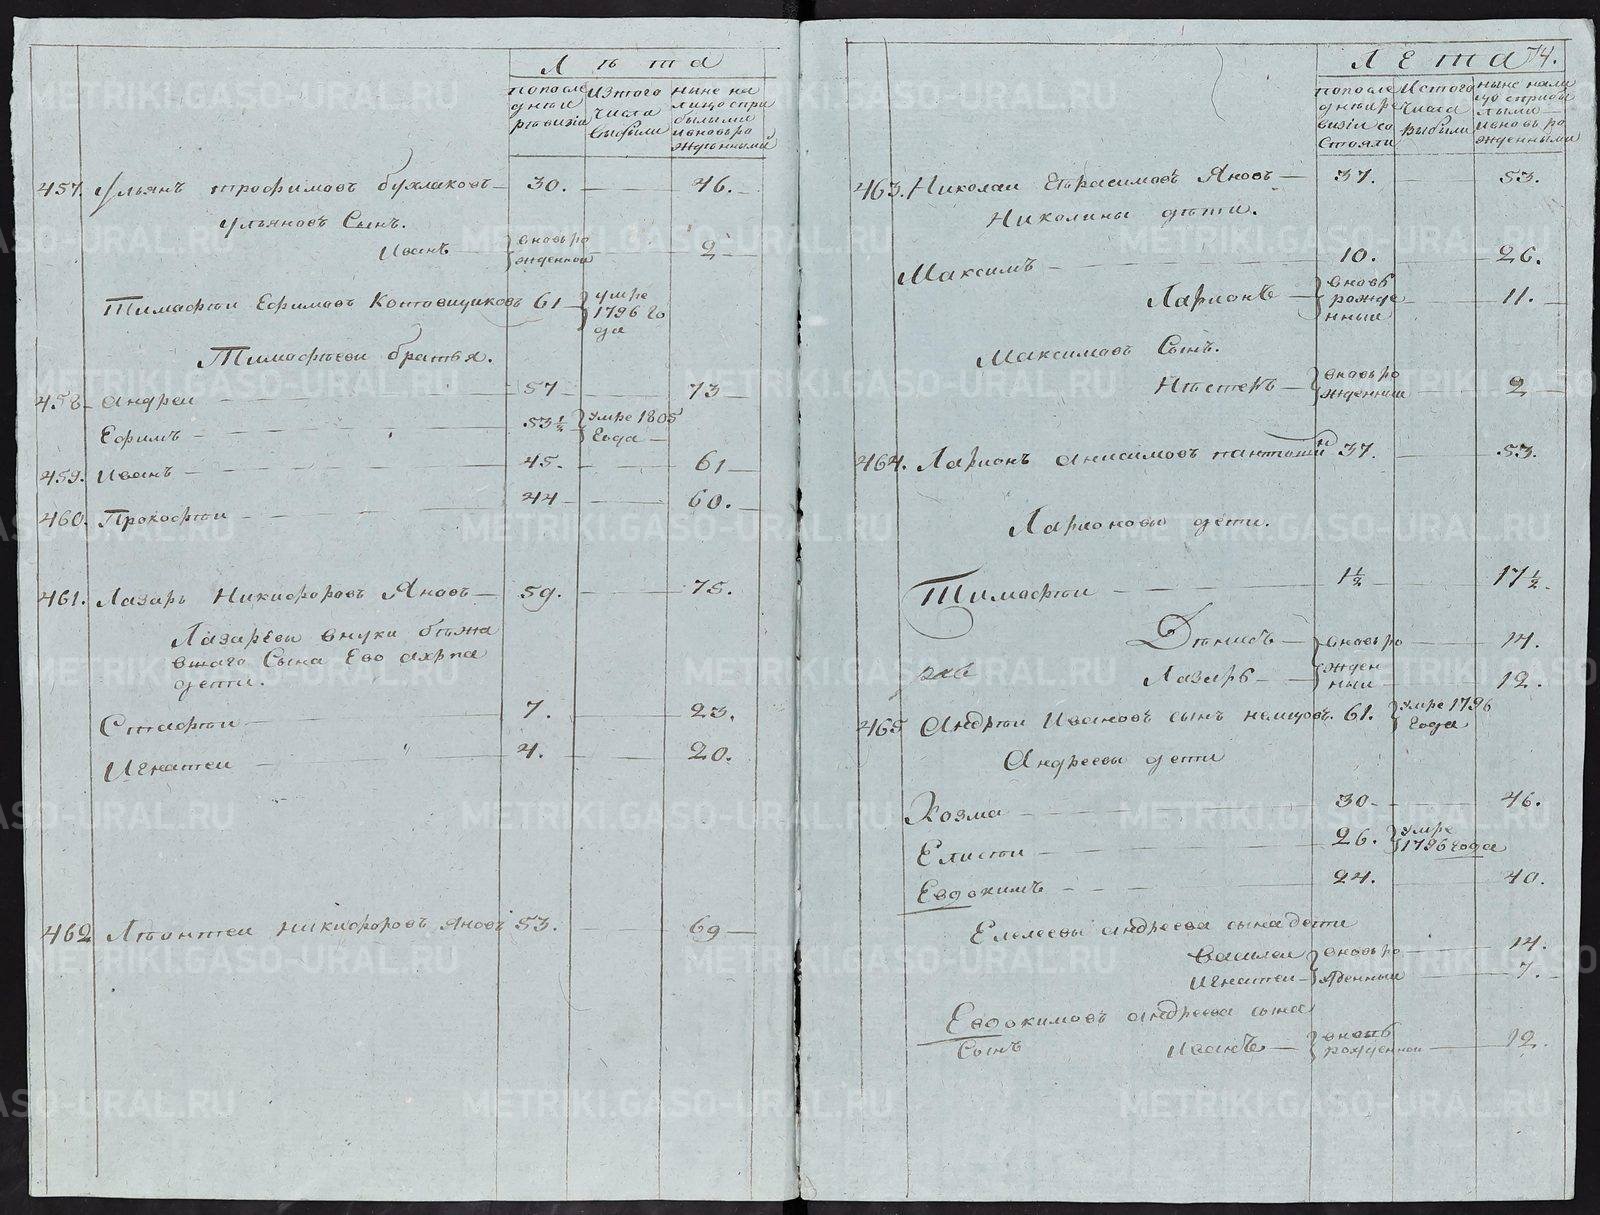 Лѣта
пополе
днѣи
рѣвизiи
Изтого
числа
выбыли
ныне на
лицо спри
былыми
ивновьро
жденными
457. Ульянъ трофимовъ бухлаковъ 30. 46.
ульяновъ Сынъ.
Иванъ вновьро
жденнои 2
Тимафѣи Ефимовъ Контовщиковъ 61 умре
1796 го
да
Тимофѣеви братья.
458 андреи 57 73
Ефимъ 53½ Умре 1805
Года
459. иванъ 45. 61
460. Прокофѣи 44 60.
461. Лазарь Никифоровъ Яновъ 59. 75.
Лазаревы внуки бѣжа
вшаго Сына Ево
дети.
Стафѣи 7. 23.
Игнатеи 4. 20.
462 Лѣонтеи никифоровъ яновъ 53. 69
74.
Лета
пополе
днѣире
визiи со
стояли
Истого
числа
выбыли
ныне нали
цо сприбы
лыми
ивновь ро
жденными
463. Николаи Герасимовъ Яновъ 37. 53.
Николины дѣти.
Максимъ 10. 26.
Ларионъ вновь
рожде
нныи 11.
Максимовъ Сынъ.
Нѣстеръ вновьро
жденныи 2
464. Ларионъ анисимовъ пантюшин 37. 53.
Ларионовы дети.
Тимафѣи 1½ 17½
Дѣнисъ вновьро 14.
Лазарь жден
ныи 12.
465 Андрѣи Ивановъ сынъ немцовъ. 61. умре 1796
Года
Андреевы дети
Козма 30. 46.
Елисѣи 26. умре
1796 года
Евдокимъ 24. 40.
андреева сына дети
василеи вновьро 14.
Игнатеи жденныи 7.
Евдокимовъ андреева сына
Сынъ иванъ вновь
рожденнои 12.